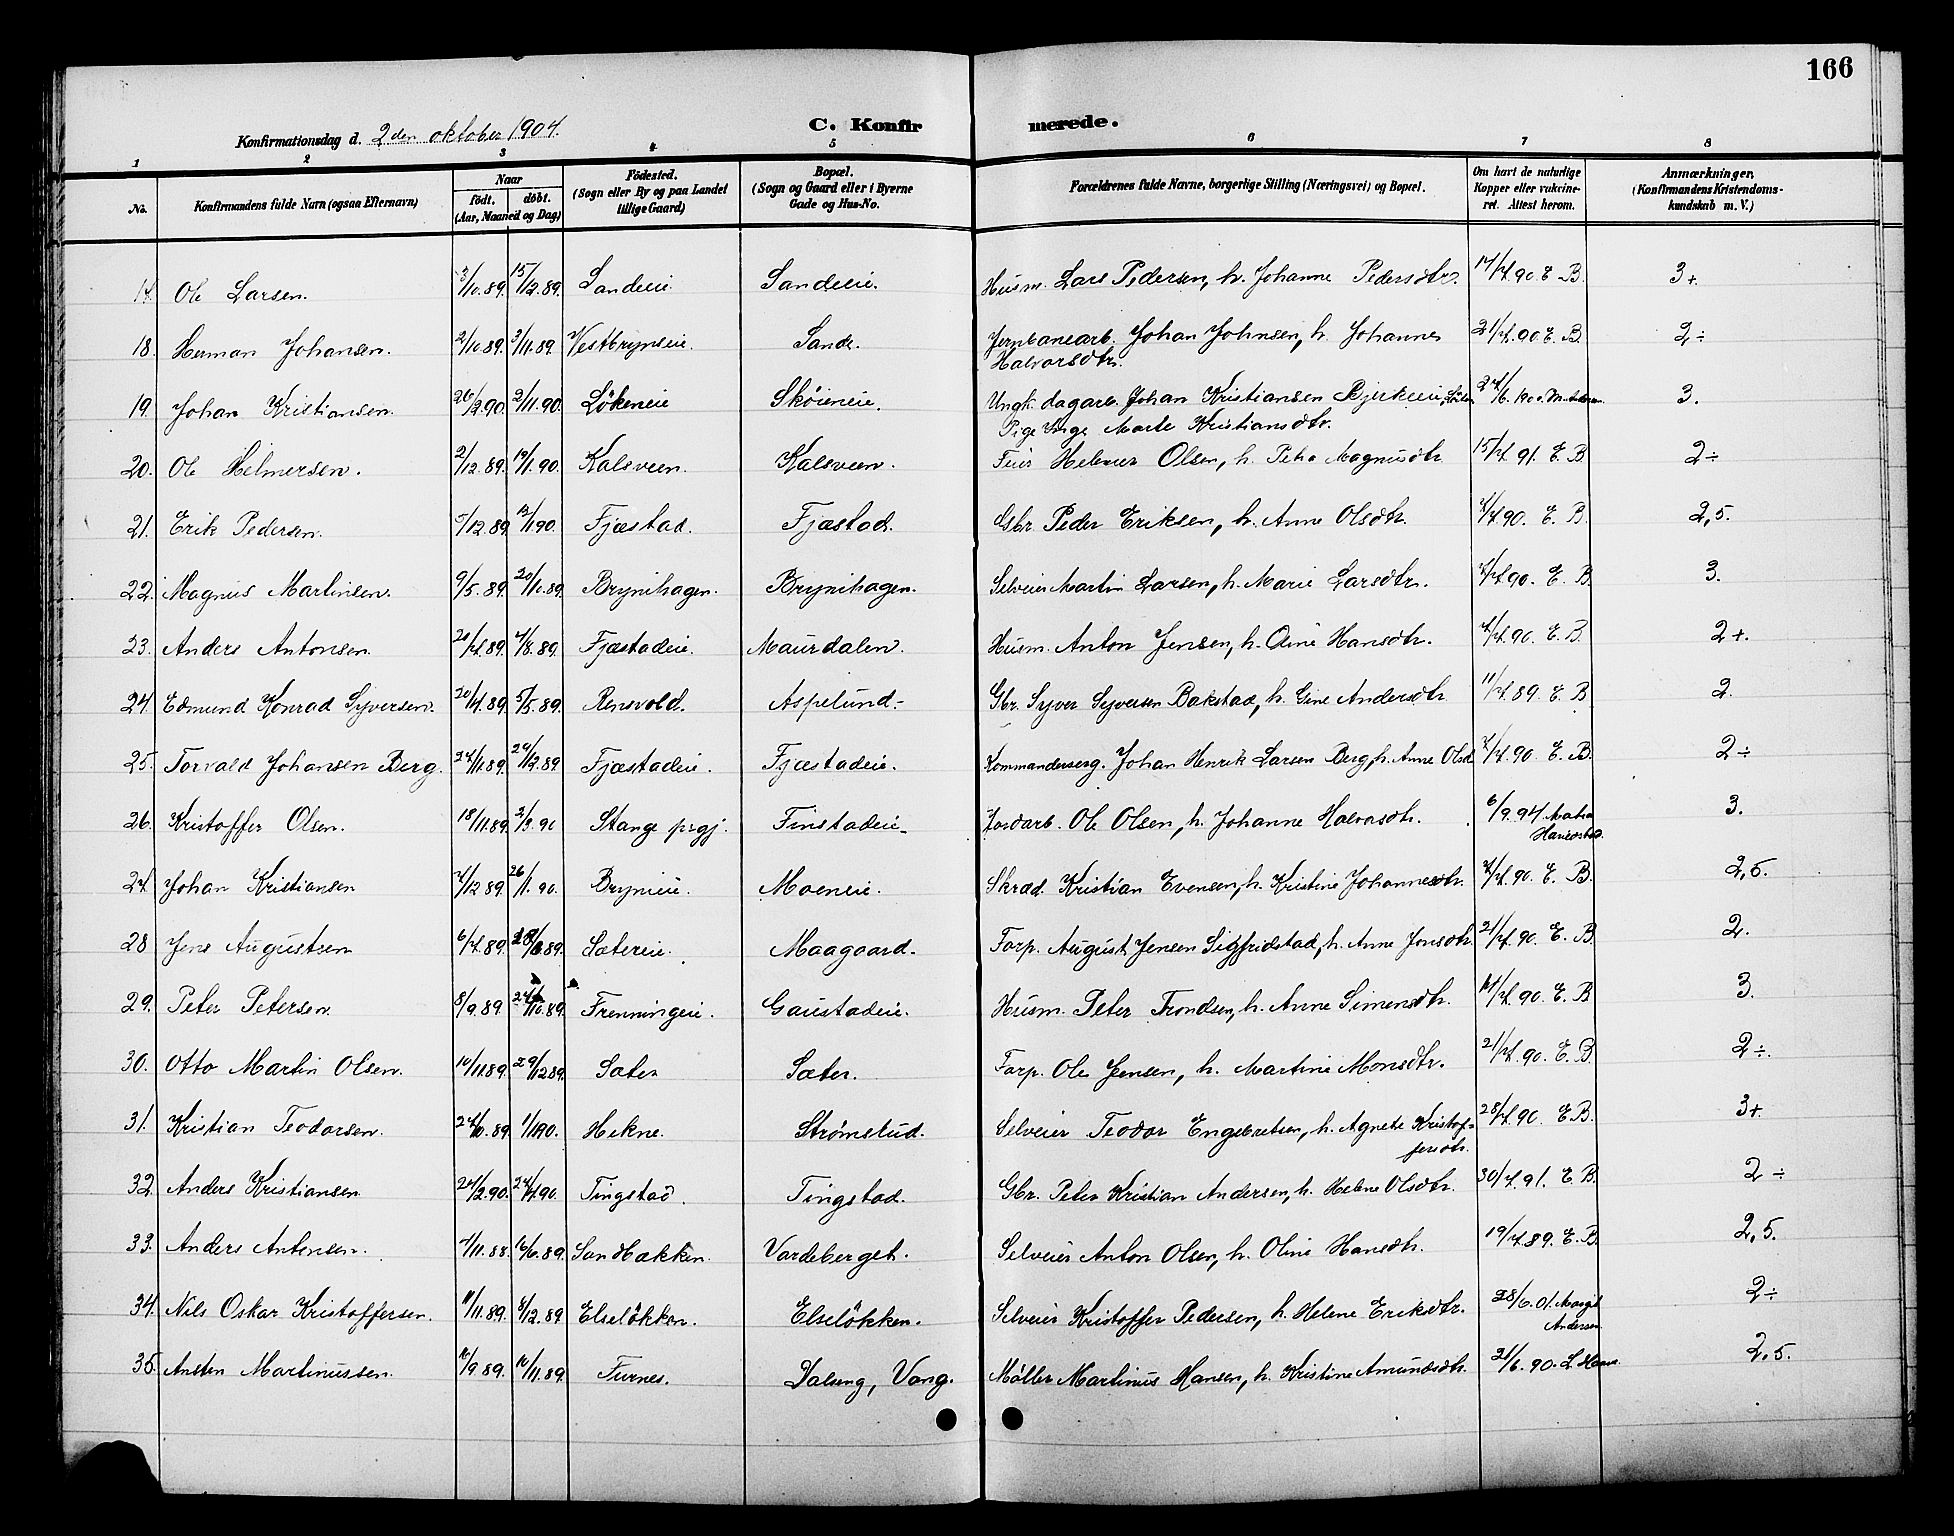 166
Konfirmationsdag d. 2den oktober 1904. C. Konfirmerede.
1 2 3 4 5 6 7 8
No. Konfirmandens fulde Navn (ogsaa Efternavn) Naar født. døbt. (Aar, Maaned og Dag) Fødested. (Sogn eller By og paa Landet tillige Gaard) Bopæl. (Sogn og Gaard eller i Byerne Gade og Hus-No. Forældrenes fulde Navne, borgerlige Stilling (Næringsvei) og Bopæl. Om havt de naturlige Kopper eller vakcineret. Attest herom. Anmærkninger, (Konfirmandens Kristendomskundskab m. V.)
17. Ole Larsen. 3/10.89. 15/12.89. Sandeie. Sandeeie. Husm. Lars Pedersen, h. Johanne Pedersdtr. 17/7.90 E B. 3+.
18. Herman Johansen. 2/10.89. 3/11.89. Vestbrynseie. Sande. Jernbanearb. Johan Johnsen, h. Johanne
Halvorsdtr. 21/7.90. E. B. 2÷
19. Johan Kristiansen. 26/2.90. 2/11.90. Lökeneie Skøieneie. Ungk. dagarb. Johan Kristiansen Bjerkeeie,
Pige Marte Kristiansdtr. 24/6.190 3.
20. Ole Helmersen. 2/12.89. 19/1.90. Kalsveen. Kalsveen. Helmer Olsen, h. Petra Magnusdtr 15/7.91. E. B. 2÷
21. Erik Pedersen. 5/12.89 12/1.90. Fjæstad. Fjæstad. Gbr. Peder Eriksen, h. Anne Olsdtr. 7/7.90. E. B. 2,5.
22. Magnus Martinsen. 9/5.89. 20/10.89. Brynihagen. Brynihagen. Selveier Martin Larsen, h. Marie Larsdtr. 7/7.90. E. B. 3.
23. Anders Antonsen. 20/7.89. 4/8.89. Fjæstadeie. Maurdalen. Husm. Anton Jensen, h. Oline Hansdtr. 7/7.90. E. B. 2+.
24. Edmund Konrad Syversen. 20/4.89. 5/5.89. Rensvold. Aspelund. Gbr. Syver Syversen Bakstad, h. Gine Andersdtr. 11/7.89. E. B 2.
25. Torvald Johansen Berg. 24/11.89. 29/12.89 Fjæstadeie. Fjæstadeie. Kommandersерg. Johan Henrik Larsen Berg, h. Anne Olsd 7/7.90. E. B. 2÷
26. Kristoffer Olsen. 18/11.89. 2/3.90 Stange prgj. Finstadeie. Jordarb. Ole Olsen, h. Johanne Halvorsdtr. 6/9.94 3.
27. Johan Kristiansen 7/12.89 26/1.90. Brynieie. Moeneie. Skræd. Kristian Evensen, h. Kristine Johannesdtr. 7/7.90. E. B. 2,5.
28 Jens Augustsen 6/7.89. 89. Sætereie. Maagaard. Forp. August Jensen Sigfridstad, h. Anne Jonsdtr. 21/7.90. E. B. 2.
29. Peter Petersen. 8/9.89. 27/10.89. Frenningeie. Gaustadeie. Husm. Peter Trondsen, h. Anne Simensdtr. 7.90. E. B 3.
30. Otto Martin Olsen. 10/11.89. 29/12.89. Sæter Sæter. Forp. Ole Jensen, h. Martine Monsdtr. 21/7.90. E. B 2÷.
31. Kristian Teodorsen. 27/10.89. 1/1.90. Hekne. Strømstud. Selveier Teodor Engebretsen, h. Agnete Kristof-
fersdtr. 28/7.90 E B. 3+
32. Anders Kristiansen 27/2.90. 27/4.90. Tingstad. Tingstad. Gbr. Peter Kristian Andersen, h. Helene Olsdtr. 30/7.91. E B. 2÷
33. Anders Antonsen. 7/11.88. 16/6.89. Sandbakken. Vardeberget. Selveier Anton Olsen, h. Oline Hansdtr. 19/7.89. E. B. 2,5.
34. Nils Oskar Kristoffersen. 11/11.89. 8/12.89 Elselökken. Elselökken. Selveier Kristoffer Pedersen, h. Helene Eriksdtr. 28/6.01. Margit
Andersen 2÷
35. Ansten Martinussen. 16/9.89. 10/11.89. Furnes. Dalseng, Vang. Møller Martinus Hansen, h. Kristine Amundsdtr. 21/6.90. 2,5.